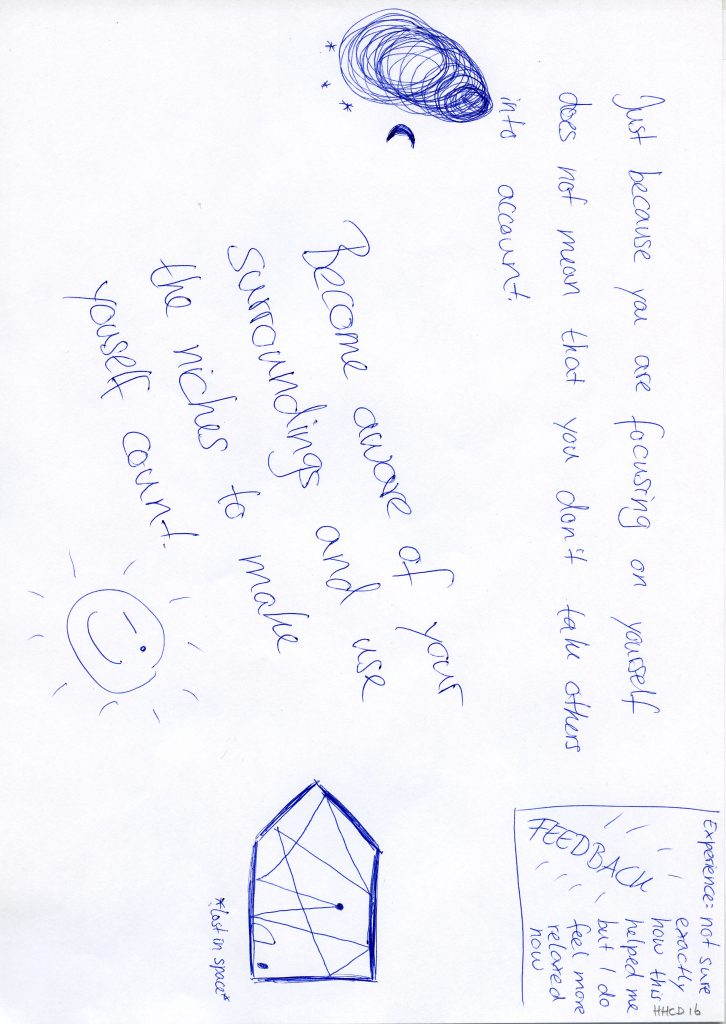 Just because you are focusing on yourself
does not mean that you don't take others
into account.
Become aware of your
surroundings and use
the niches to make
youself count.
FEEDBACK
Experience: not sure
exactly
how this
helped me
but I do
feel more
relaxed
now
HHCD16
*Lost in space*